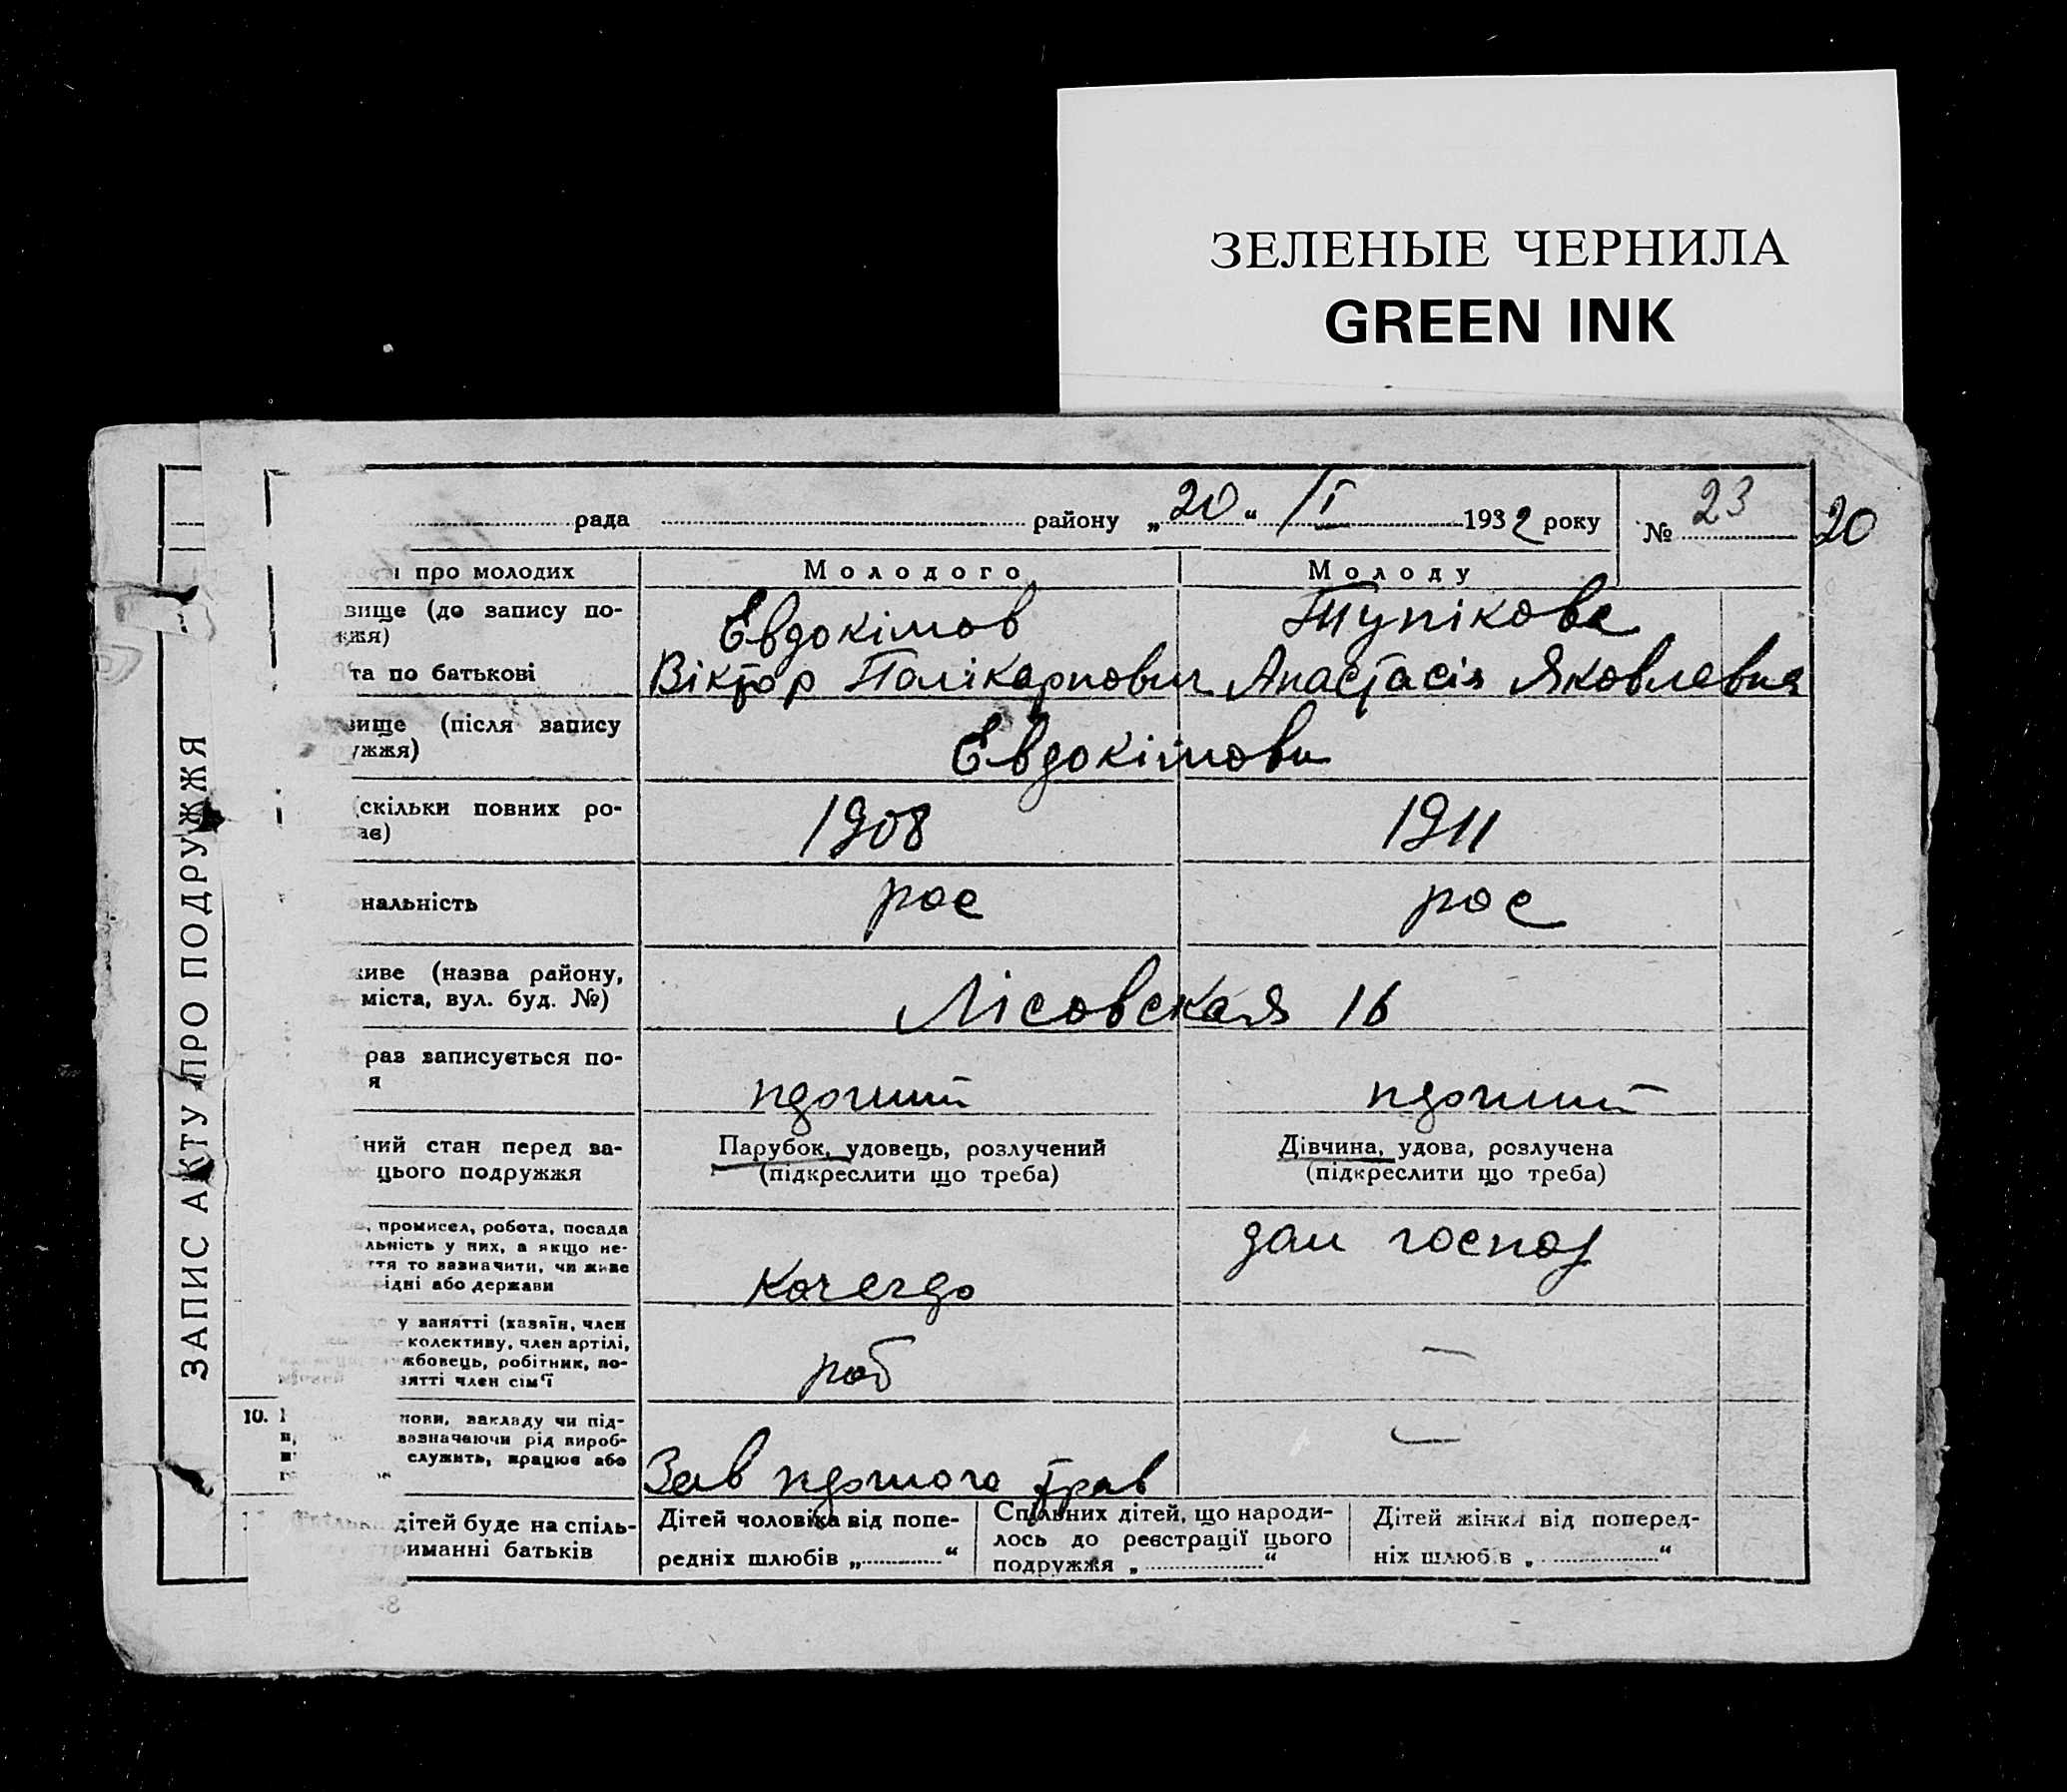 ЗЕЛЕНЫЕ ЧЕРНИЛА
GREEN INK
рада району „20“ /I 1932 року № 23
20
ЗАПИС АКТУ ПРО ПОДРУЖЖЯ
про молодих Молодого Молоду
вище (до запису по-
жжя)
Евдокімов Тупікова
та по батькові Віктор Полікарпович Анастасія Яковлевна
вище (після запису
ужжя)
Евдокімови
скільки повних ро-
ає)
1908 1911
нальність рос рос
живе (назва району,
міста, вул. буд. №)
Лісовская 16
раз записується по-
я
ний стан перед за-
цього подружжя
Парубок, удовець, розлучений
(підкреслити що треба)
Дівчина, удова, розлучена
(підкреслити що треба)
, промисел, робота, посада
льність у них, а якщо не-
ття то вазначити, чи живе
ідні або держави
дом господ
у занятті (хазяїн, член
колективу, член артілі,
жбовець, робітник, по-
нятті член сім'ї
роб —
10.
нови, закладу чи під-
вазначаючи рід вироб-
служить, працює або
Зав —
дітей буде на спіль-
риманні батьків
Дітей чоловіка від попе-
редніх шлюбів „ “
Спільних дітей, що народи-
лось до реєстрації цього
подружжя „ “
Дітей жінки від поперед-
ніх шлюбів „ “